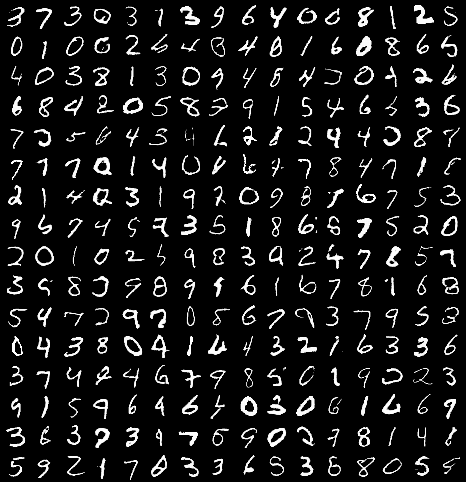 3 7 3 0 3 1 3 9 6 4 0 0 8 1 2 5
0 1 0 0 2 6 4 8 4 0 1 6 0 8 6 5
4 0 3 8 1 3 0 9 4 5 4 0 2 6
6 8 4 2 0 5 8 7 9 1 5 4 6 3 6
7 5 6 4 3 4 6 2 8 2 4 4 0 8 7
7 7 7 0 1 4 0 6 7 8 4 7 1 8
2 1 4 0 3 1 9 7 0 9 8 6 7 5 3
9 6 7 4 5 7 3 5 1 8 6 8 7 5 2 0
2 0 1 0 2 5 9 8 3 9 2 4 7 8 5 7
3 9 8 9 8 9 9 6 1 6 7 8 1 6 8
5 4 7 2 9 7 0 8 6 7 9 3 7 9 5 8
0 4 3 8 0 4 1 6 4 3 2 1 6 3 3 6
3 7 4 9 4 6 7 9 8 5 0 1 9 2 3
9 1 5 9 6 9 6 5 0 3 0 6 1 6 6 9
3 6 3 7 3 9 7 5 9 0 2 9 8 1 4 8
5 9 2 1 7 8 3 3 6 5 3 8 8 0 5 5